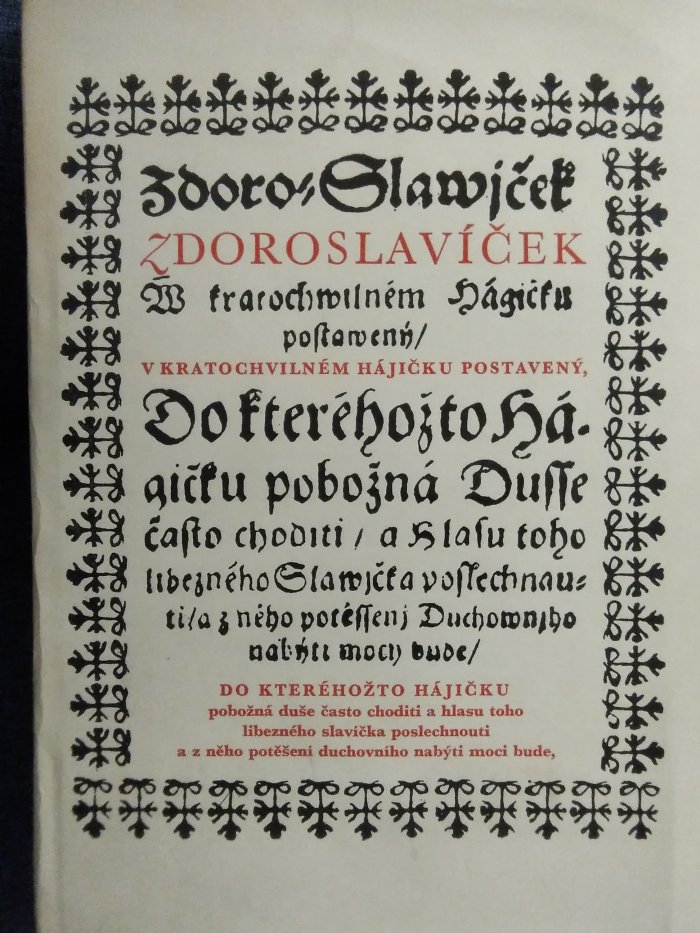 Zdoro⸗Slawjček
ZDOROSLAVÍČEK
W kratochwilném Hágičku
poſtawený/
V KRATOCHVILNÉM HÁJIČKU POSTAVENÝ,
Do kteréhožto Há⸗
gičku pobožná Duſſe
čaſto choditi / a Hlaſu toho
libezného Slawjčka poſlechnau⸗
ti/a z něho potěſſenj Duchownjho
nabýti mocy bude/
DO KTERÉHOŽTO HÁJIČKU
pobožná duše často choditi a hlasu toho
libezného slavíčka poslechnouti
a z něho potěšení duchovního nabýti moci bude,